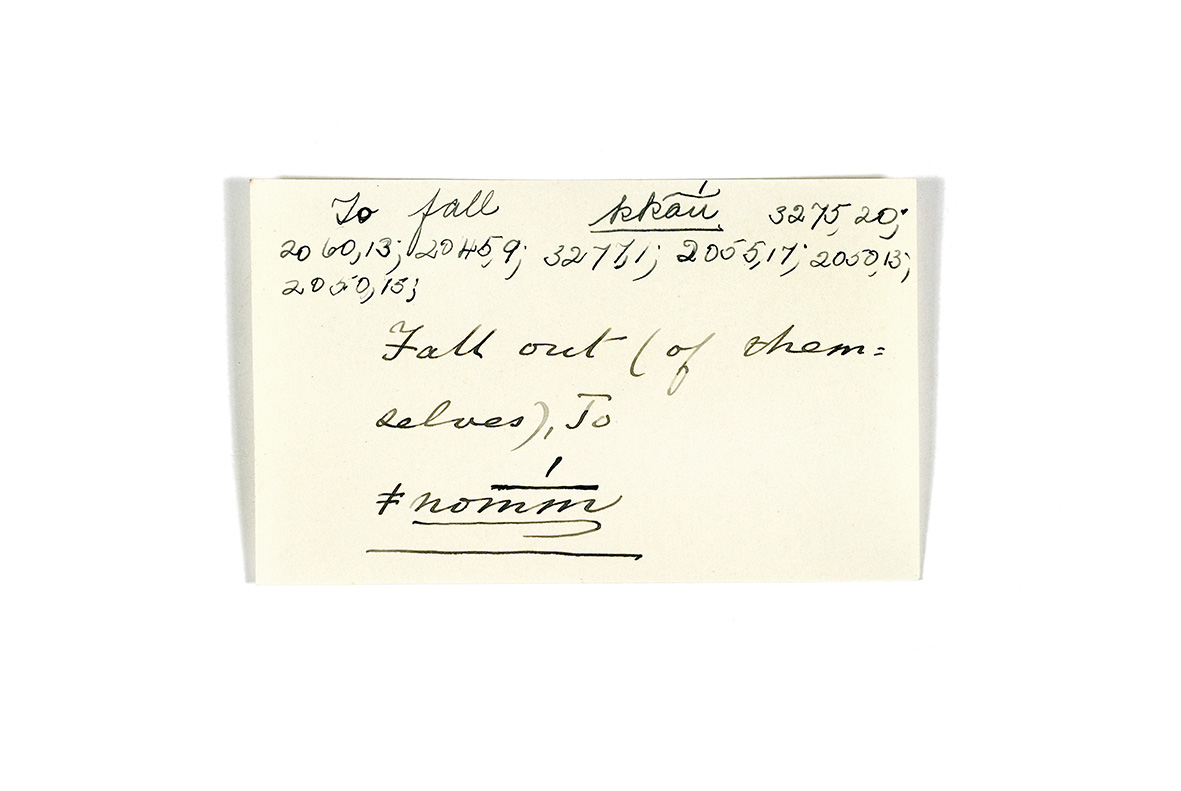 To fall kkãú, 3275,20;
2060,13; 2045,9; 3277,1; 2055,17; 2050,13;
2050,15;
Fall out (of them=
selves), To
ǂnom̄́m